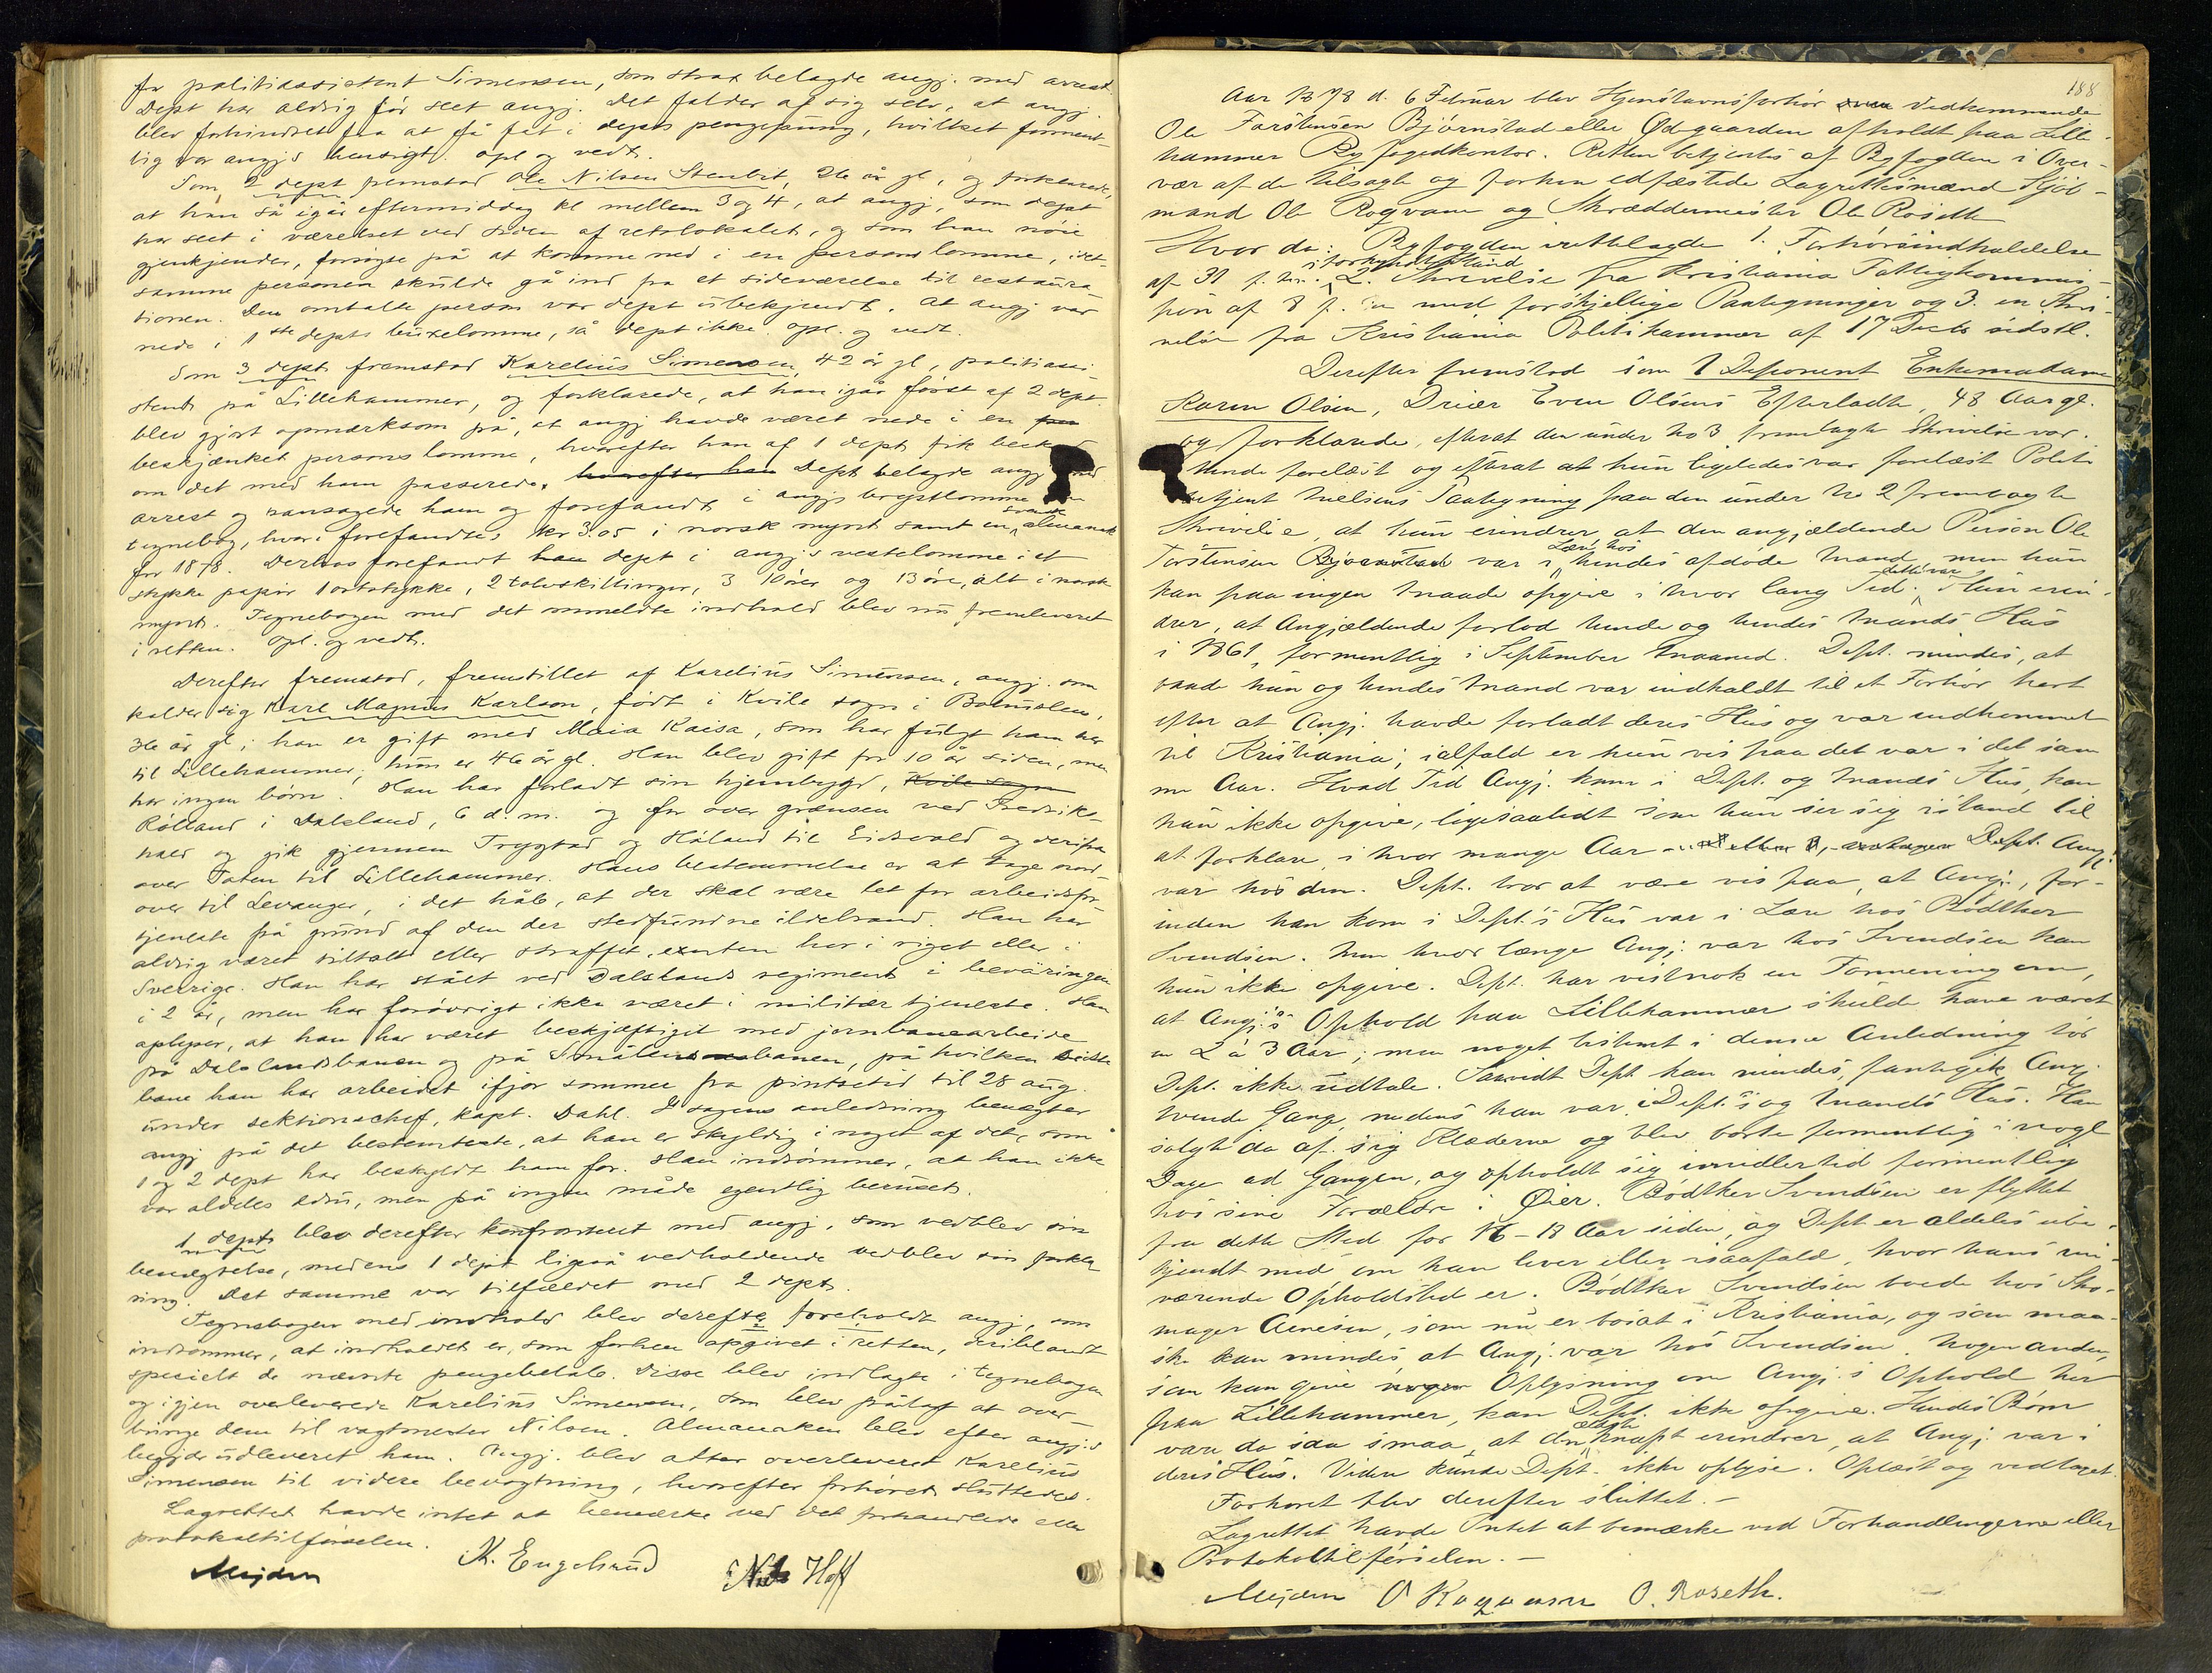 for politiassistent Simensen, som strax belagde angj. med arrest.
Dept har aldrig før seet angj. Det falder af sig selv, at angj.
blev forhindret fra at få fat i depts pengepung, hvilket forment-
lig var angjs hensigt. opl og vedt.
Som 2 dept fremstod Ole Nilsen Stenbet, 26 år gl, og forklarede,
at han så igår eftermiddag kl mellem 3 og 4, at angj, som dept
har seet i værelset ved siden af retslokalet, og som han nøie
gjenkjender, forsøgte på at komme ned i en persons lomme, idet
samme personen skulde gå ind fra et sideværelse til restaura
tionen. Den omtalte person var dept ubekjendt. At angj var
nede i 1ste depts buxelomme, så dept ikke. opl. og vedt.
Som 3 dept fremstod Karelius Simensen, 42 år gl, politiassi
stent på Lillehammer, og forklarede, at han igår først af 2 dept.
blev gjort opmærksom på, at angj havde været nede i en
beskjænket persons lomme, hvorefter han af 1 dept fik besked
om det med ham passerede, hvorefter han Dept belagde angj med
arrest og ransagede ham og forefandt i angjs brystlomme en
svensk
tegnebog, hvori forefandtes kr 3.05 i norsk mynt samt en almanak
for 1878. Derhos forefandt han dept i angjs vestelomme i et
stykke papir 1 ortstykke, 2 tolvskillinger, 3 10 ører og 13 øre, alt i norsk
mynt. Tegnebogen med det anmeldte indhold blev nu fremleveret
i retten. Opl. og vedt.
Derefter fremstod, fremstillet af Karelius Simensen, angj. som
kalder sig Karl Magnus Karlson, født i Kville sogn i Bohuslen,
36 år gl; han er gift med Maia Kaisa, som har fulgt ham her
til Lillehammer; hun er 46 år gl. Han blev gift for 10 år siden, men
har ingen børn. Han har forladt sin hjembygd, Kville sogn
Rölland i Dalsland, 6 d. m. og for over grænsen ved Fredriks-
hald og gik gjennem Trygstad og Høland til Eidsvold og derifra
over Toten til Lillehammer. Hans bestemmelse er at tage nord-
over til Levanger, i det håb, at der skal være let for arbeidsfor
tjeneste på grund af den der stedfundne ildebrand. Han har
aldrig været tiltalt eller straffet, enten her i riget eller i
Sverrige. Han har stået ved Dalslands regiment i beväringen
i 2 år, men har forøvrigt ikke været i militær tjeneste. Han
oplyser, at han har været beskjæftiget med jernbanearbeide
på Dalslandsbanen og på Smålensbanen, på hvilken sidste
bane han har arbeidet ifjor sommer fra pintsetid til 28 aug
under sektionschef, kapt. Dahl. I sagens anledning benægter
angj på det bestemteste, at han er skyldig i noget af det, som
1 og 2 dept har beskyldt ham for. Han indrømmer, at han ikke
var aldeles ædru, men på ingen måde egentlig beruset.
1 dept blev derefter konfronteret med angj, som vedblev sin
benægtelse, medens 1 dept ligeså vedholdende vedblev sin forkla
ring. Det samme var tilfældet med 2 dept.
Tegnebogen med indhold blev derefter foreholdt angj, som
indrømmer, at indholdet er, som forhen opgivet i retten, deriblandt
specielt de nævnte pengebeløb. Disse blev indlagte i tegnebogen
og igjen overleverede Karelius Simensen, som blev pålagt at over-
bringe dem til vagtmester Nilsen. Almanaken blev efter angjs
begjær udleveret ham. Angj. blev atter overleveret Karelius
Simensen til videre bevogtning, hvorefter forhøret sluttedes.
Lagrettet havde intet at bemærke ved det forhandlede eller
protokoltilførselen.
Mejdell K. Engelsrud Nils Hoff
188
Aar 1878 d. 6 Februar blev Hjemstavnsforhør over vedkommende
Ole Torstensen Bjørnstad eller Ødegaarden afholdt paa Lille-
hammer Byfogedkontor. Retten betjentes af Byfogden i Over-
vær af de tilsagte og forhen edfæstede Lagrettesmænd Skjøl-
mand Ole Rogvam og Skræddermester Ole Roseth
Hvor da: Byfogden irettelagde 1. Forhørsindkaldelse
i forkyndt Stand
af 31 f. m. 2. Skrivelse fra Kristiania Fattigkommis-
sion af 8 f. m med forskjellige Paategninger og 3. en Skri-
velse fra Kristiania Politikammer af 17 Decbr sidstl.
Derefter fremstod som 1 Deponent Enkemadame
Karen Olsen, Driær Even Olsens Efterladte, 48 Aar gl.
og forklarede, efterat den under No 3 fremlagte Skrivelse var
hende forelæst og efterat at hun ligeledes var forelæst Politi
betjent Nielsens Paategning paa den under No 2 fremlagte
Skrivelse, at hun erindrer, at den angjældende Person Ole
Lære hos
Torstensen Bjørnstad var i hendes afdøde Mand, men hun
dette var
kan paa ingen Maade opgive i hvor lang Tid. Hun erin-
drer, at Angjældende forlod hende og hendes Mands Hus
i 1861, formentlig i September Maaned. Dept. mindes, at
baade hun og hendes Mand var indkaldt til et Forhør kort
efter at Angj. havde forladt deres Hus og var indkommet
til Kristiania; ialfald er hun vis paa det var i det sam
me Aar. Hvad Tid Angj. kom i Dept. og Mands Hus, kan
hun ikke opgive, ligesaalidt som hun ser sig istand til
at forklare, i hvor mange Aar Dept. Angj.
var hos dem. Dept. tror at være vis paa, at Angj., for-
inden han kom i Dept.'s Hus var i Lære hos Bødtker
Svendsen. Men hvor længe Angj. var hos Svendsen kan
hun ikke opgive. Dept. har vistnok en Formening om,
at Angj.'s Ophold paa Lillehammer skulde have været
en 2 à 3 Aar; men noget bestemt i denne Anledning tør
Dept. ikke udtale. Saavidt Dept kan mindes, fantegik Angj.
tvende Gange, medens han var i Dept.'s og Mands Hus. Han
solgte da af sig Klæderne og blev borte formentlig i nogle
Dage ad Gangen, og opholdt sig imidlertid formentlig
hos sine Forældre i Øier. Bødtker Svendsen er flyttet
fra dette Sted for 16-18 Aar siden, og Dept er aldeles ube-
kjendt med om han lever eller isaafald, hvor hans nu-
værende Opholdsted er. Bødtker Svendsen boede hos Sko-
mager Arnesen, som nu er bosat i Kristiania, og som maa-
ske kan mindes, at Angj. var hos Svendsen. Nogen anden,
som kan give nogen Oplysning om Angj.'s Ophold her
paa Lillehammer, kan Dept. ikke opgive. Hendes Børn
ældste
vare da saa smaa, at den knapt erindrer, at Angj. var i
deres Hus. Videre kunde Dept. ikke oplyse. Oplæst og vedtaget.
Forhøret blev derefter sluttet.-
Lagrettet havde Intet at bemærke ved Forhandlingerne eller
Protokoltilførselen.-
Mejdell O Rogvam O. Roseth.